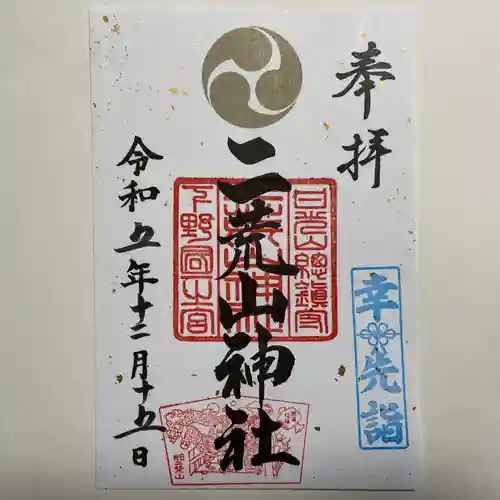 奉拝
幸先詣
日光山總鎮守
二荒山神社
下野国一宮
令和五年十二月十五日